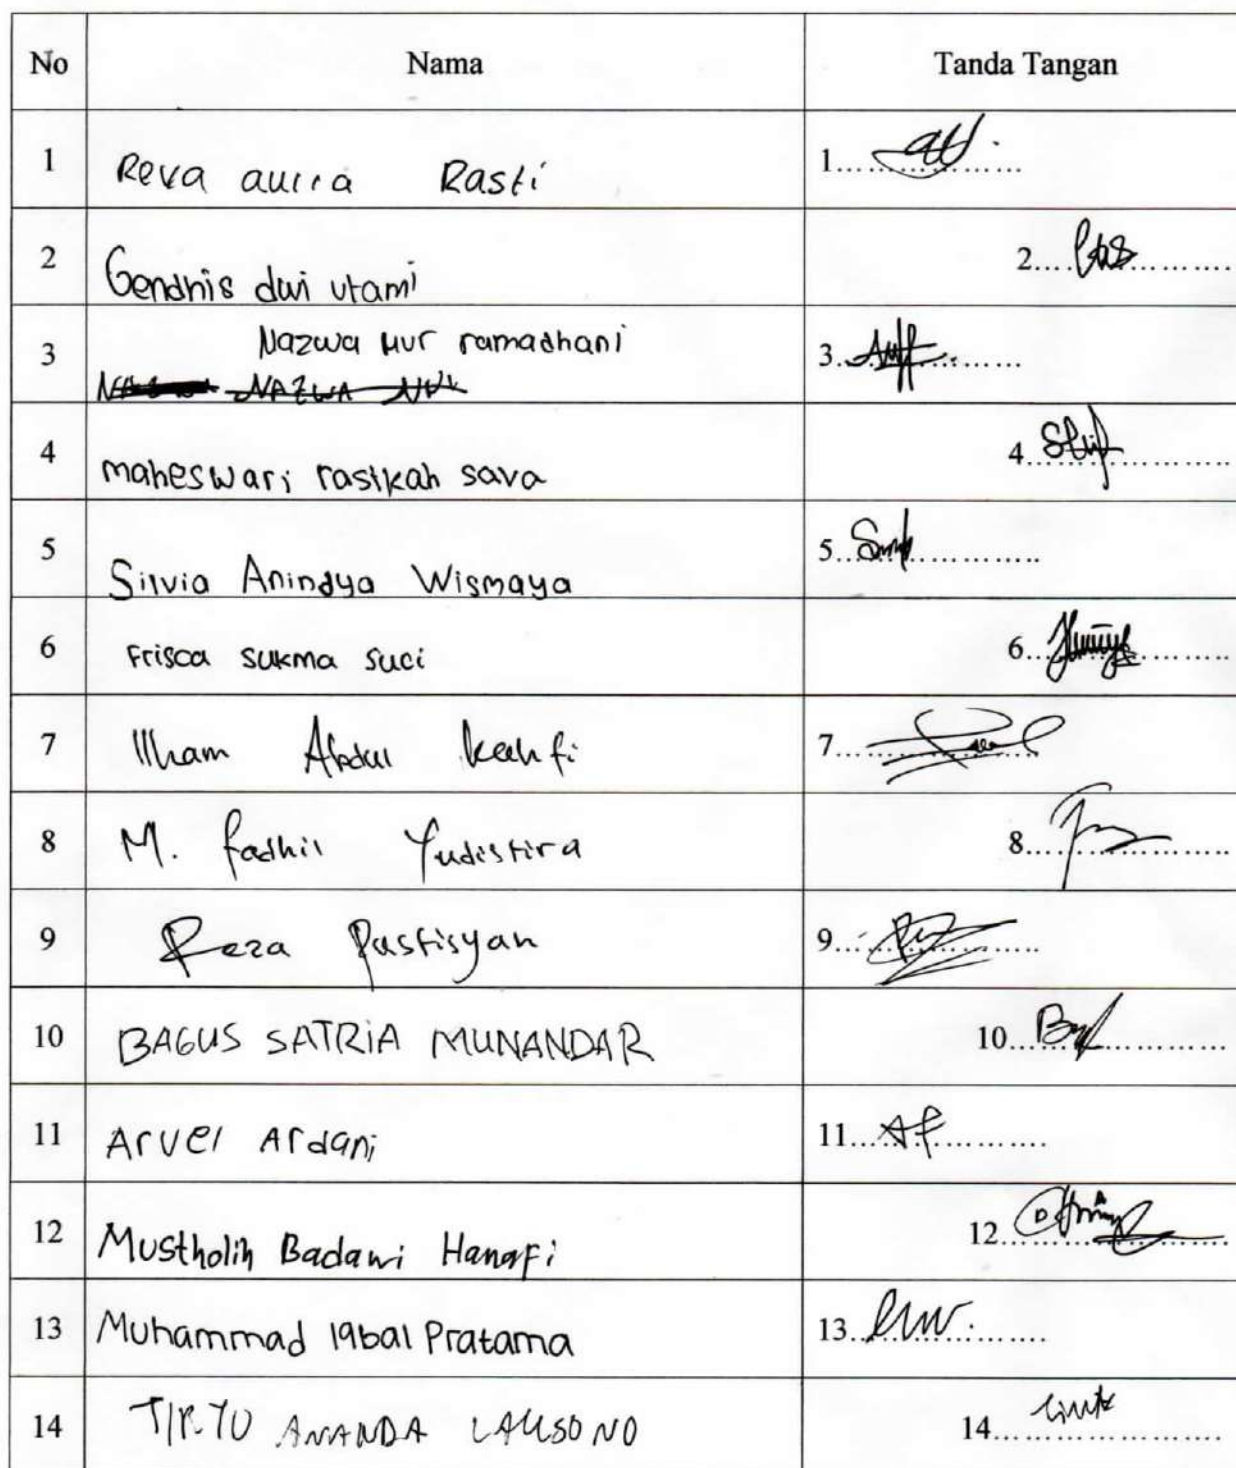 No Nama Tanda Tangan
1 Reva aurra Rasti 1....................
2 Gendhis dwi utami 2....................
3 Nazwa Nur ramadhani 3....................
NAZWA NUR
4 maheswari rasikah sava 4....................
5 Silvia Anindya Wismaya 5....................
6 Frisca sukma suci 6....................
7 Ilham Abdul kahfi 7....................
8 M. fadhil Yudistira 8....................
9 Reza Pastisyan 9....................
10 BAGUS SATRIA MUNANDAR 10....................
11 Arvel Ardani 11....................
12 Mustholih Badawi Hanafi 12....................
13 Muhammad Iqbal Pratama 13....................
14 ANANDA 14....................